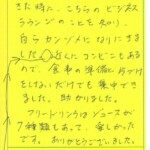 きた時に、こちらのビジネス
ラウンジのことを知り、
自らカンヅメになりにきま
した。近くにコンビニもある
ので、食事の準備に片づけ
をしないだけでも集中でき
ました。助かりました。
フリードリンクはジュースが
7種類もあって、楽しかった
です。ありがとうございました。